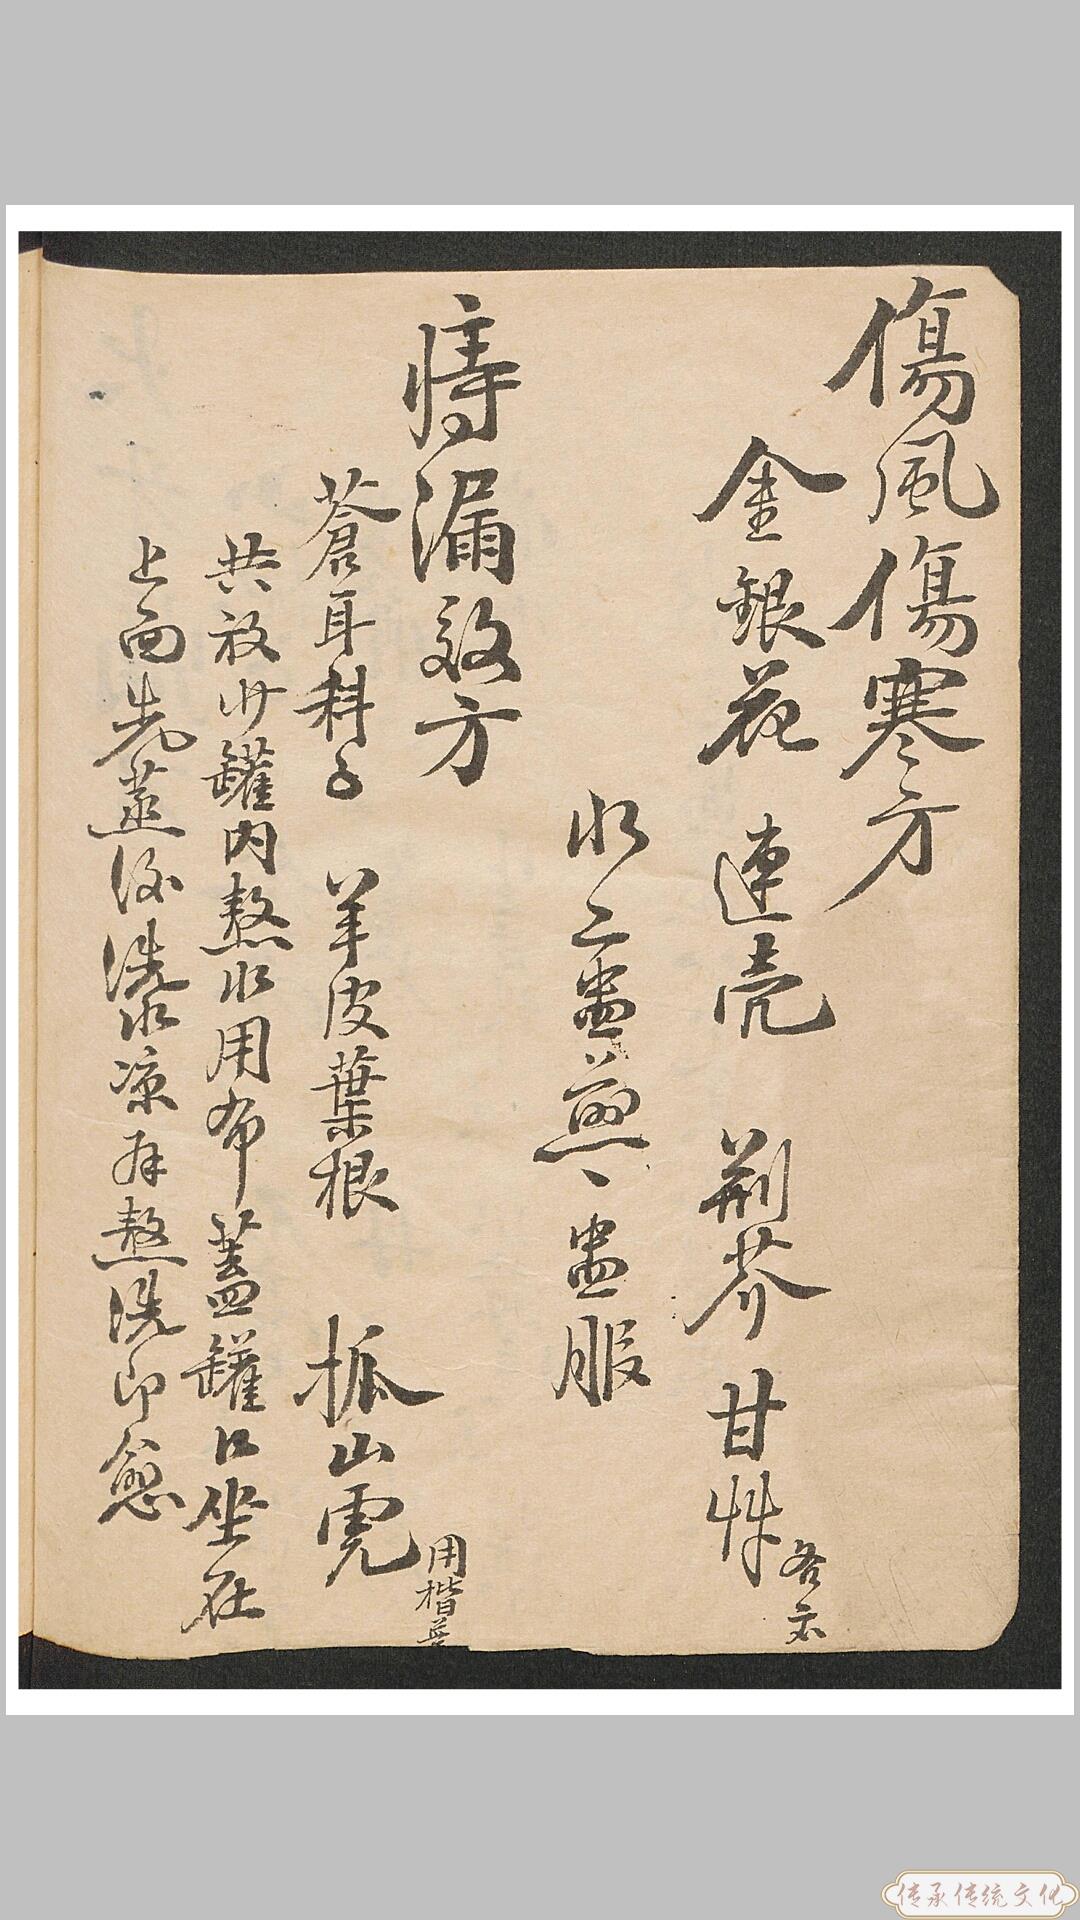 傷風傷寒方
金銀花 連壳 荆芥 甘艸
各
水二盅煎一盅服
痔漏效方
蒼耳科子 羊皮葉根 抓山虎
用楷
共放小罐内熬水用布蓋罐口坐在
上面先蒸後洗水凉再熬洗即愈
传承传统文化